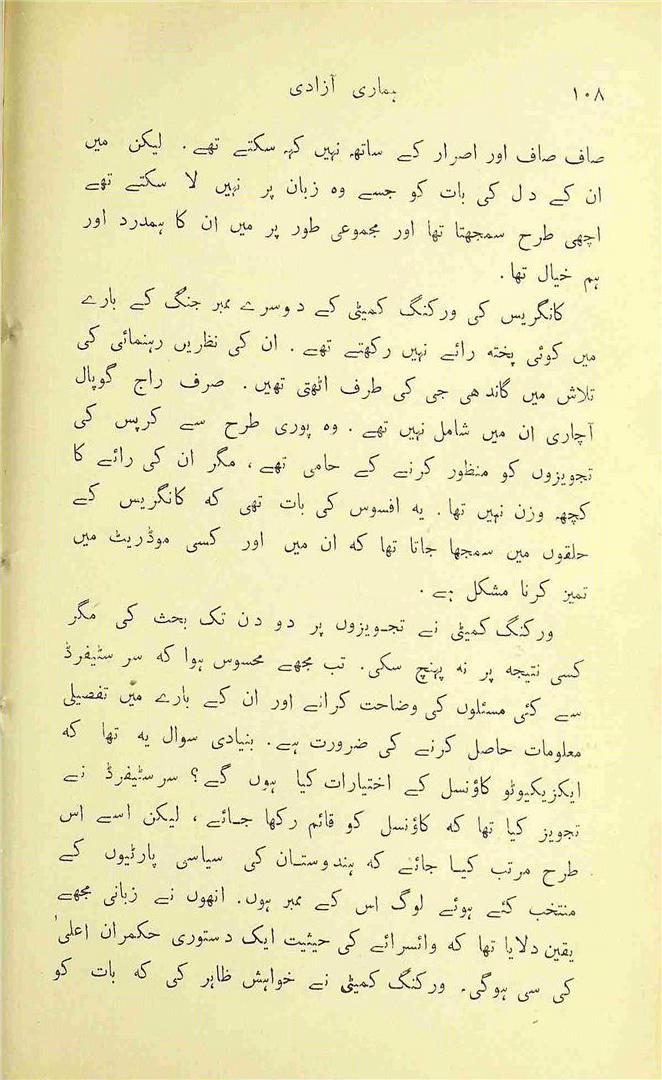 ۱۰۸ ہماری آزادی
صاف صاف اور اصرار کے ساتھ نہیں کہہ سکتے تھے۔ لیکن میں
ان کے دل کی بات کو جسے وہ زبان پر نہیں لا سکتے تھے
اچھی طرح سمجھتا تھا اور مجموعی طور پر میں ان کا ہمدرد اور
ہم خیال تھا۔
کانگریس کی ورکنگ کمیٹی کے دوسرے ممبر جنگ کے بارے
میں کوئی پختہ رائے نہیں رکھتے تھے۔ ان کی نظریں رہنمائی کی
تلاش میں گاندھی جی کی طرف اٹھتی تھیں۔ صرف راج گوپال
آچاری ان میں شامل نہیں تھے۔ وہ پوری طرح سے کرپس کی
تجویزوں کو منظور کرنے کے حامی تھے، مگر ان کی رائے کا
کچھ وزن نہیں تھا۔ یہ افسوس کی بات تھی کہ کانگریس کے
حلقوں میں سمجھا جاتا تھا کہ ان میں اور کسی موڈریٹ میں
تمیز کرنا مشکل ہے۔
ورکنگ کمیٹی نے تجویزوں پر دو دن تک بحث کی مگر
کسی نتیجہ پر نہ پہنچ سکی۔ تب مجھے محسوس ہوا کہ سر سٹیفرڈ
سے کئی مسئلوں کی وضاحت کرانے اور ان کے بارے میں تفصیلی
معلومات حاصل کرنے کی ضرورت ہے۔ بنیادی سوال یہ تھا کہ
ایکزیکیوٹو کاؤنسل کے اختیارات کیا ہوں گے؟ سر سٹیفرڈ نے
تجویز کیا تھا کہ کاؤنسل کو قائم رکھا جائے، لیکن اسے اس
طرح مرتب کیا جائے کہ ہندوستان کی سیاسی پارٹیوں کے
منتخب کئے ہوئے لوگ اس کے ممبر ہوں۔ انھوں نے زبانی مجھے
یقین دلایا تھا کہ وائسرائے کی حیثیت ایک دستوری حکمران اعلیٰ
کی سی ہوگی۔ ورکنگ کمیٹی نے خواہش ظاہر کی کہ بات کو